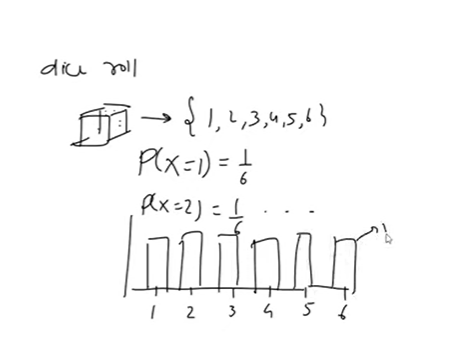 dice roll
→ {1, 2, 3, 4, 5, 6}
P(X=1) = 1/6
P(X=2) = 1/6 . . .
1 2 3 4 5 6